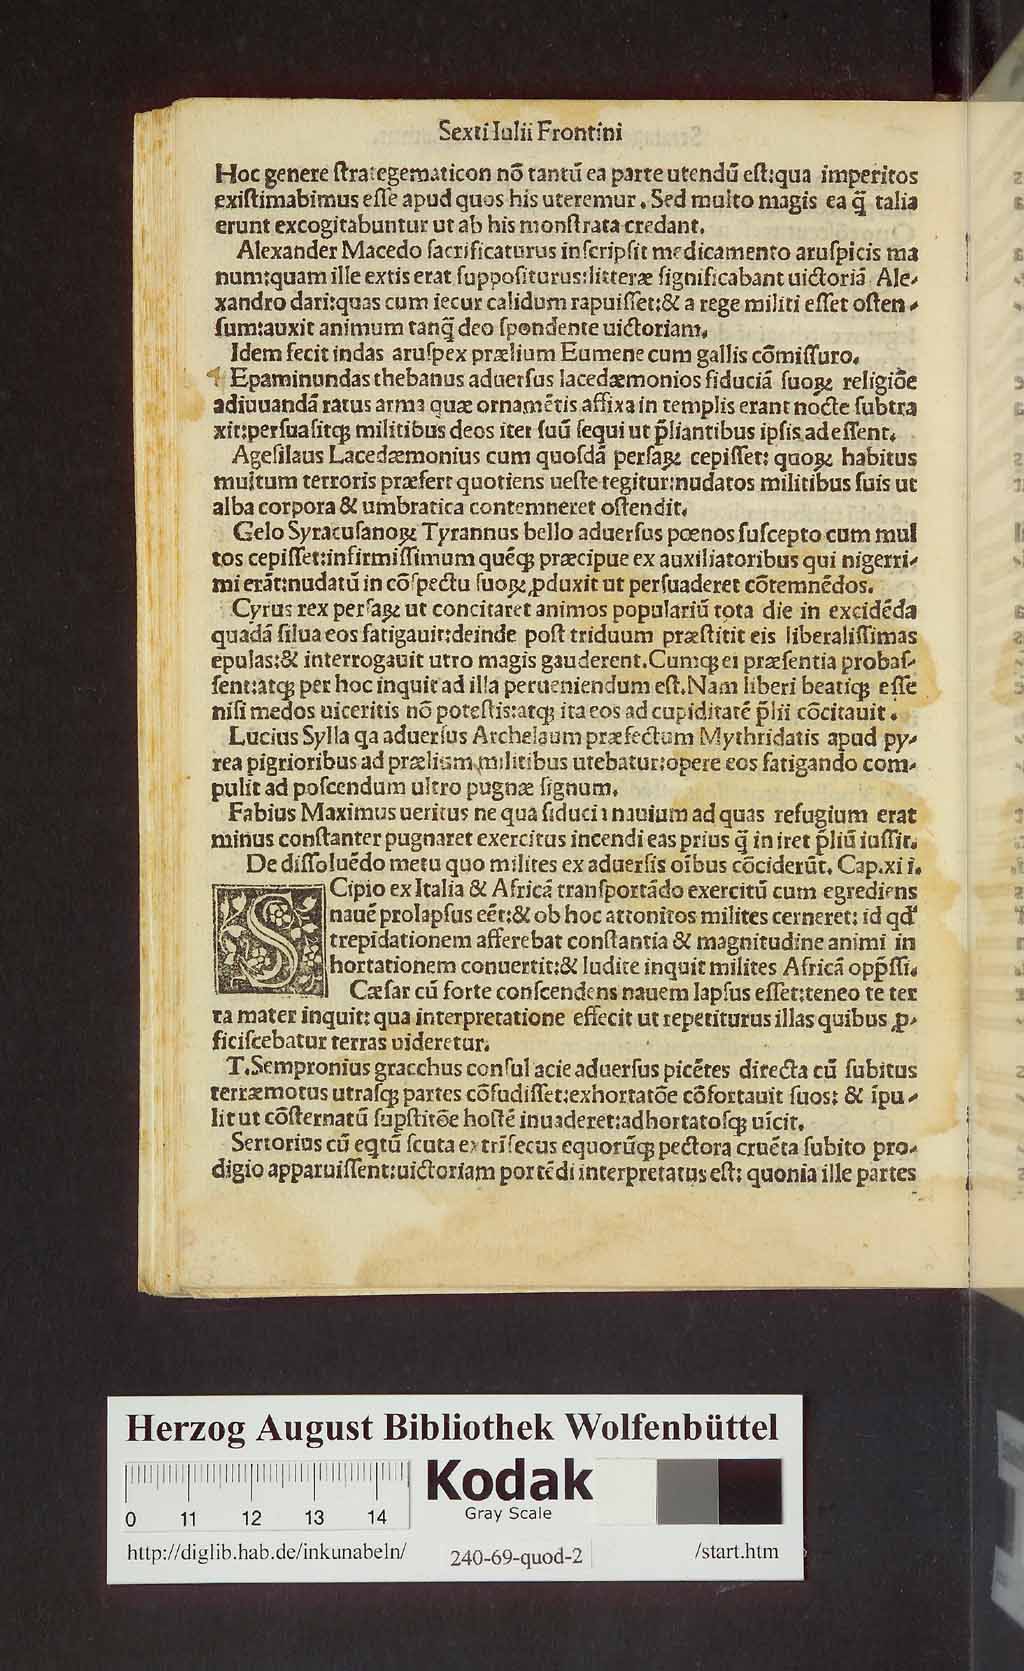 Sexti Iulii Frontini
Hoc genere ſtrategematicon nō tantū ea parte utendū eſt:qua imperitos
exiſtimabimus eſſe apud quos his uteremur. Sed multo magis ea q̄ talia
erunt excogitabuntur ut ab his monſtrata credant.
Alexander Macedo ſacrificaturus inſcripſit medicamento aruſpicis ma
num:quam ille extis erat ſuppoſiturus:litteræ ſignificabant uictoriā Ale-
xandro dari:quas cum iecur calidum rapuiſſet:& a rege militi eſſet oſten-
ſum:auxit animum tanq̄ deo ſpondente uictoriam.
Idem fecit indas aruſpex prælium Eumene cum gallis cōmiſſuro.
Epaminundas thebanus aduerſus lacedæmonios fiduciā ſuoꝝ religiōe
adiuuandā ratus arma quæ ornamētis affixa in templis erant nocte ſubtra
xit:perſuaſitqȝ militibus deos iter ſuū ſequi ut p̄liantibus ipſis adeſſent.
Ageſilaus Lacedæmonius cum quoſdā perſaꝝ cepiſſet: quoꝝ habitus
multum terroris præfert quotiens ueſte tegitur:nudatos militibus ſuis ut
alba corpora & umbratica contemneret oſtendit.
Gelo Syracuſanoꝝ Tyrannus bello aduerſus pœnos ſuſcepto cum mul
tos cepiſſet:infirmiſſimum quēqȝ præcipue ex auxiliatoribus qui nigerri-
mi erāt:nudatū in cōſpectu ſuoꝝ ꝓduxit ut perſuaderet cōtemnēdos.
Cyrus rex perſaꝝ ut concitaret animos populariū tota die in excidēda
quadā ſilua eos fatigauit:deinde poſt triduum præſtitit eis liberaliſſimas
epulas:& interrogauit utro magis gauderent.Cumqȝ ei præſentia probaſ-
ſent:atqȝ per hoc inquit ad illa perueniendum eſt.Nam liberi beatiqȝ eſſe
niſi medos uiceritis nō poteſtis:atqȝ ita eos ad cupiditatē p̄lii cōcitauit.
Lucius Sylla qa aduerſus Archelaum præfectum Mythridatis apud py-
rea pigrioribus ad prælium militibus utebatur:opere eos fatigando com-
pulit ad poſcendum ultro pugnæ ſignum.
Fabius Maximus ueritus ne qua fiducia nauium ad quas refugium erat
minus conſtanter pugnaret exercitus incendi eas prius q̄ in iret p̄liū iuſſit.
De diſſoluēdo metu quo milites ex aduerſis oībus cōciderūt. Cap.xii.
SCipio ex Italia & Africā tranſportādo exercitū cum egrediens
nauē prolapſus eēt:& ob hoc attonitos milites cerneret: id qd'
trepidationem afferebat conſtantia & magnitudine animi in
hortationem conuertit:& ludite inquit milites Africā opp̄ſſi.
Cæſar cū forte conſcendens nauem lapſus eſſet:teneo te ter
ra mater inquit: qua interpretatione effecit ut repetiturus illas quibus ꝓ-
ficiſcebatur terras uideretur.
T.Sempronius gracchus conſul acie aduerſus picētes directa cū ſubitus
terræmotus utraſqȝ partes cōfudiſſet:exhortatōe cōfortauit ſuos: & īpu-
lit ut cōſternatū ſuꝑſtitōe hoſtē inuaderet:adhortatoſqȝ uīcit.
Sertorius cū eqtū ſcuta extrīſecus equorūqȝ pectora cruēta ſubito pro-
digio apparuiſſent:uictoriam portēdi interpretatus eſt: quonia ille partes
Herzog August Bibliothek Wolfenbüttel
0 11 12 13 14
Kodak
Gray Scale
http://diglib.hab.de/inkunabeln/ 240-69-quod-2 /start.htm